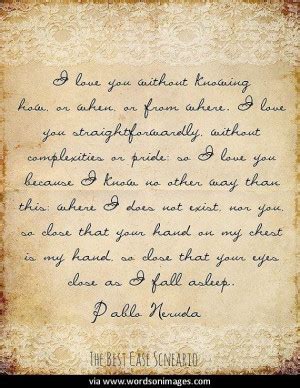 I love you without knowing
how, or when, or from where. I love
you straightforwardly, without
complexities or pride: so I love you
because I know no other way than
this: where I does not exist, nor you,
so close that your hand on my chest
is my hand, so close that your eyes
close as I fall asleep.
Pablo Neruda
THE BEST CASE SCNEARIO
via www.wordsonimages.com